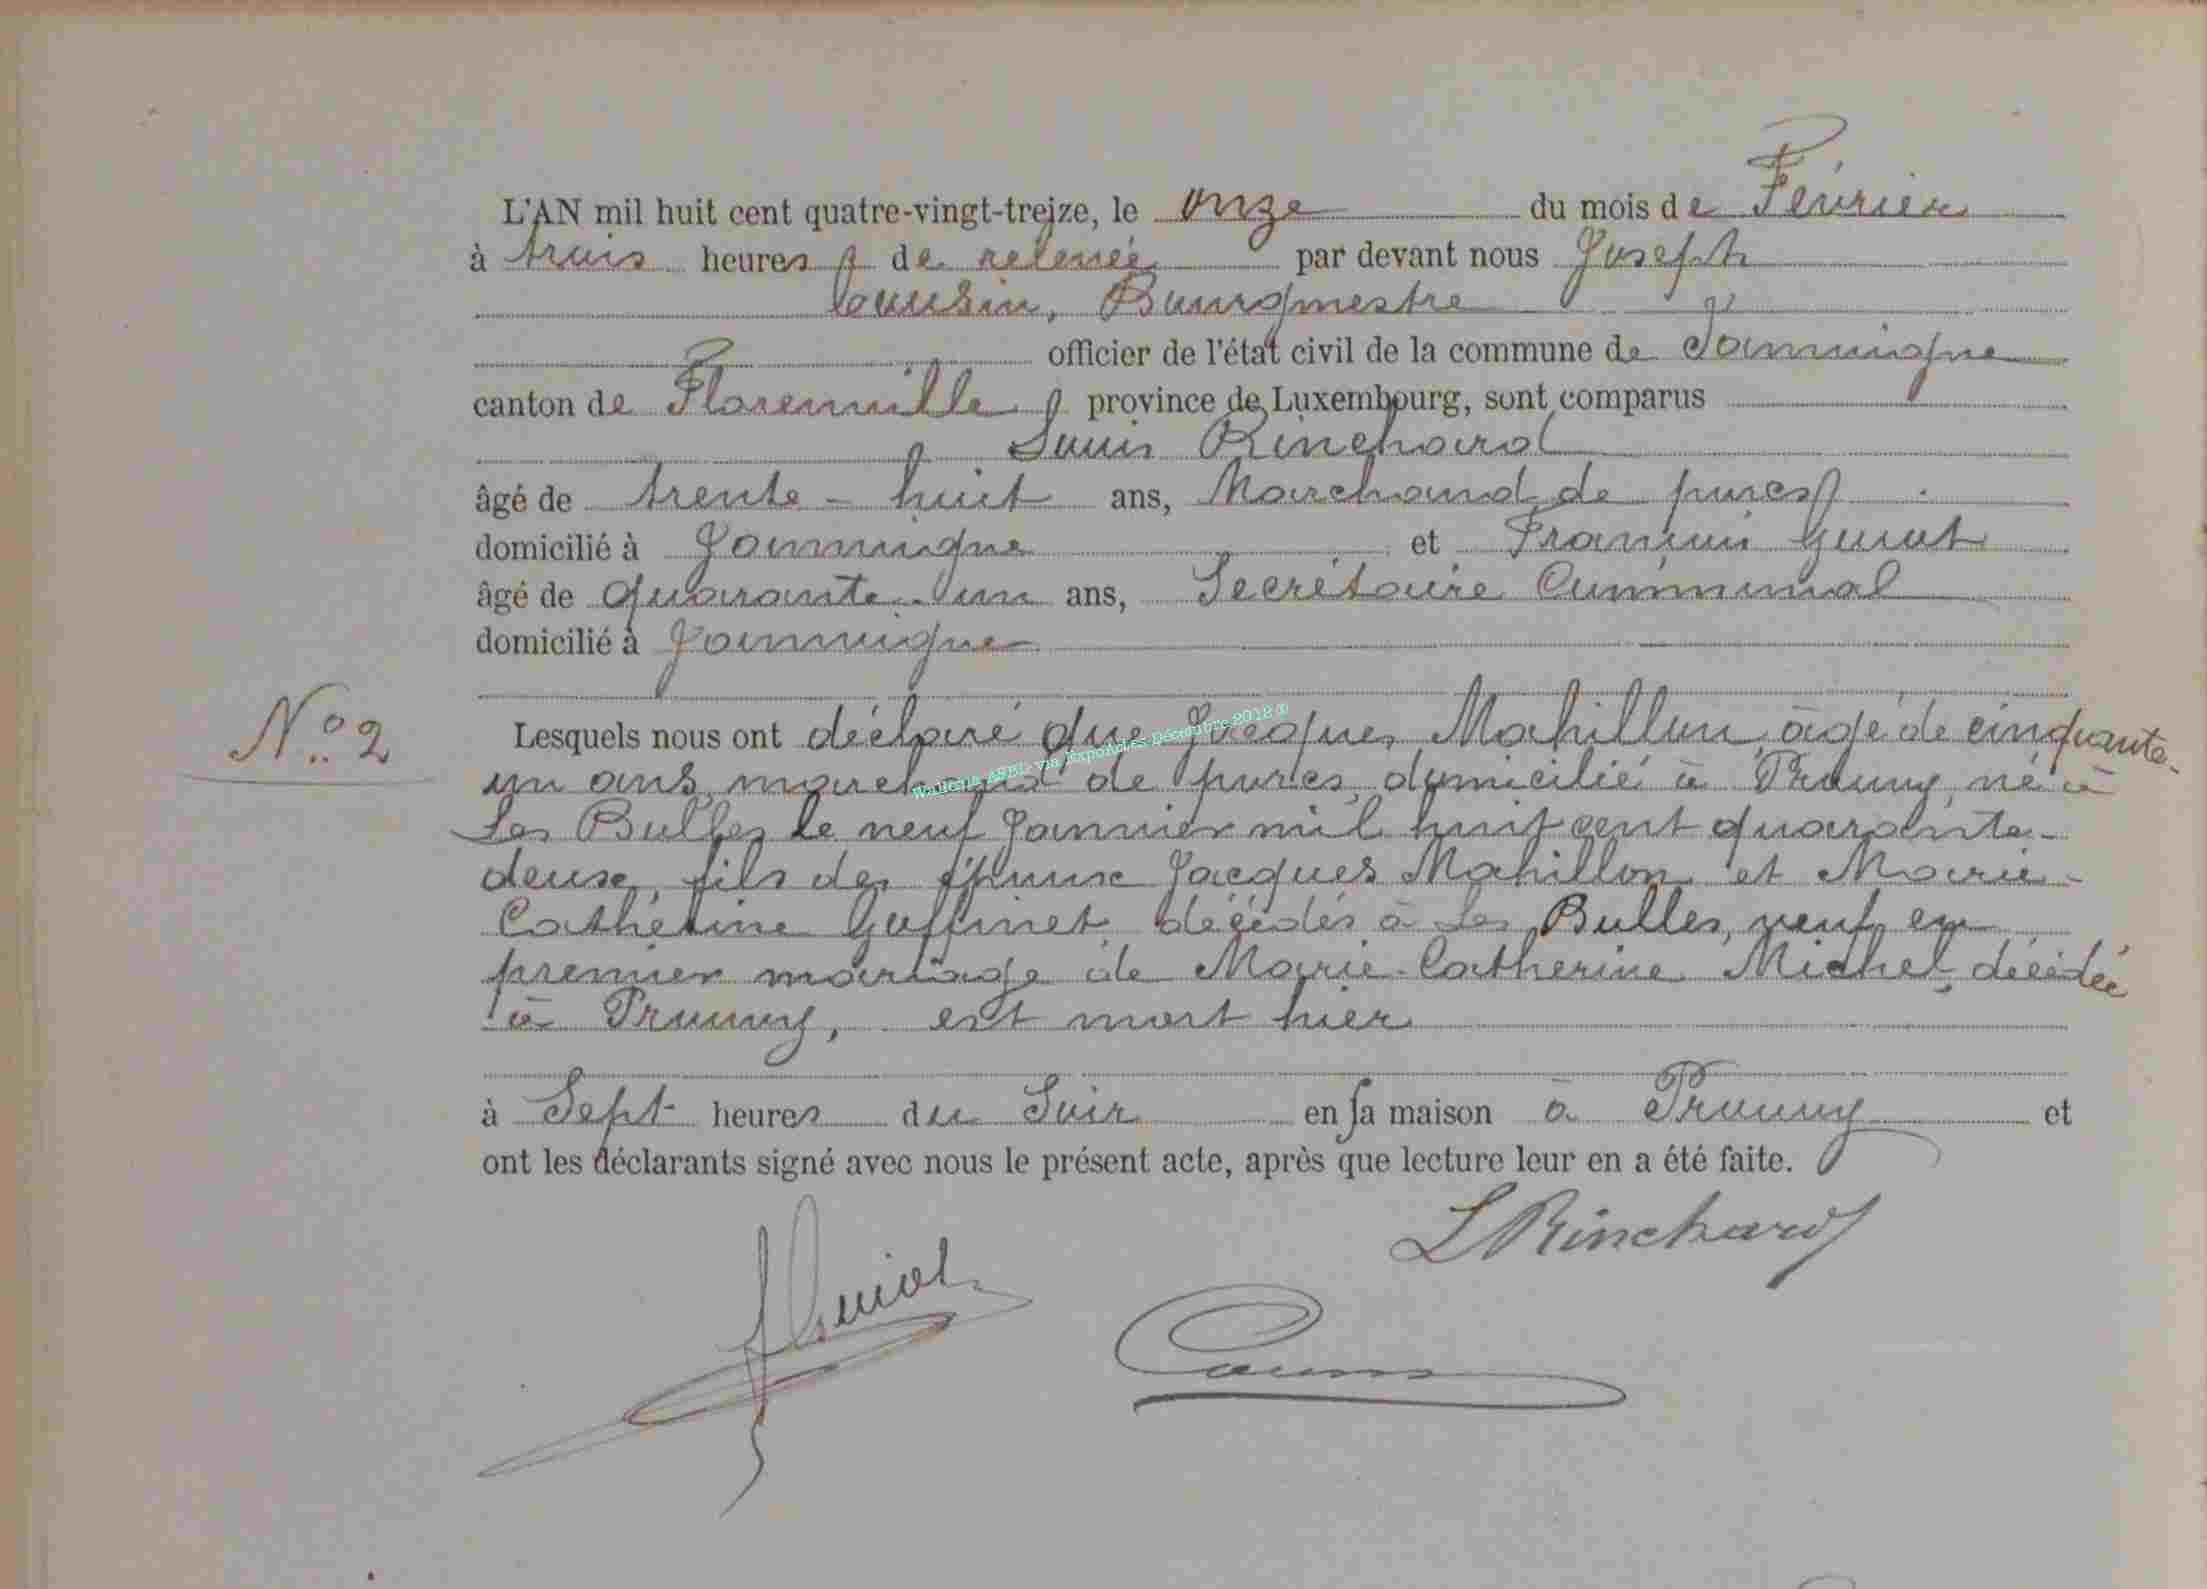 L'AN mil huit cent quatre-vingt-treize, le onze du mois de Février
à trois heures de relevée par devant nous Joseph
Cousin, Bourgmestre
officier de l'état civil de la commune de Jamoigne
canton de Florenville province de Luxembourg, sont comparus
Louis Rinchard
âgé de trente-huit ans, Marchand de porcs
domicilié à Jamoigne et François Guiot
âgé de quarante-un ans, Secrétaire Communal
domicilié à Jamoigne
N° 2
Lesquels nous ont déclaré que Jacques Mahillon, âgé de cinquante-
un ans, marchand de porcs, domicilié à Prouvy, né à
Les Bulles le neuf Janvier mil huit cent quarante-
deux, fils des époux Jacques Mahillon et Marie-
Cathérine Goffinet, décédés à Les Bulles, veuf en
premier mariage de Marie-Catherine Michel, décédée
à Prouvy, est mort hier
à Sept heures du Soir en sa maison à Prouvy et
ont les déclarants signé avec nous le présent acte, après que lecture leur en a été faite.
L Rinchard
f Guiot
Cousin
Wallonia ASBL via ExpoActes Décembre 2012 ©